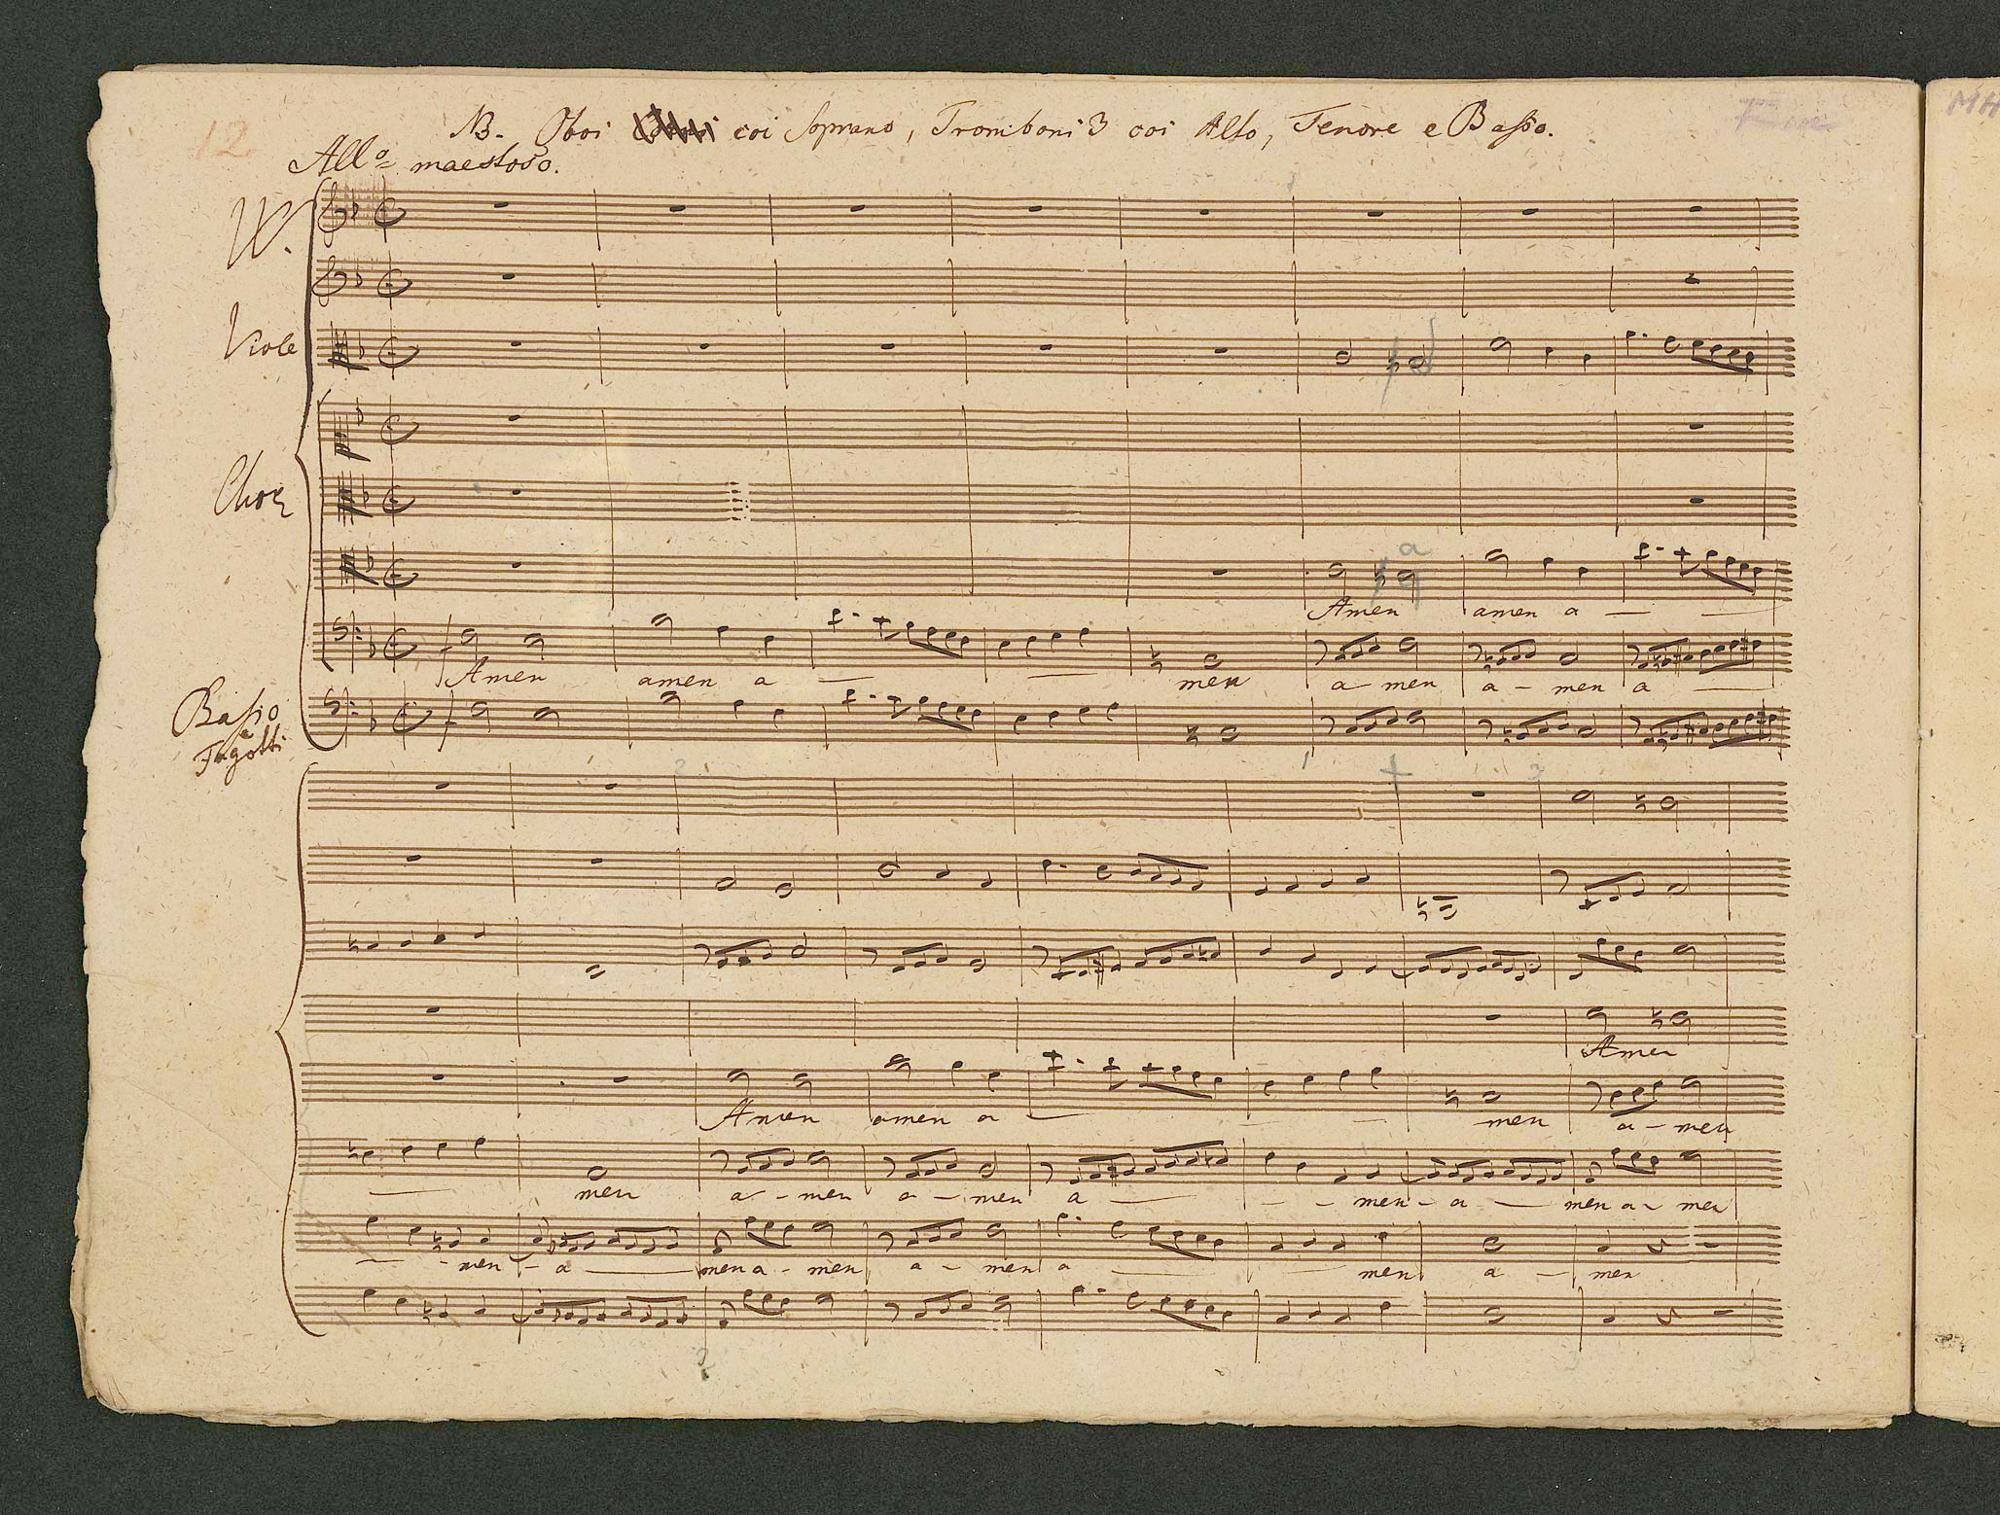 12
NB. Oboi coi Soprano, Tromboni 3 coi Alto, Tenore e Basso.
Allo maestoso.
VV.
Viole
Chor
a
Amen amen a
Amen amen a — — men a - men a - men a —
Basso
e
Fagotti
Amen
Amen amen a — — men a - men
— men a - men a - men a — - - men - a — men a - men
— - men - a — men a - men a - men a — — men a — men